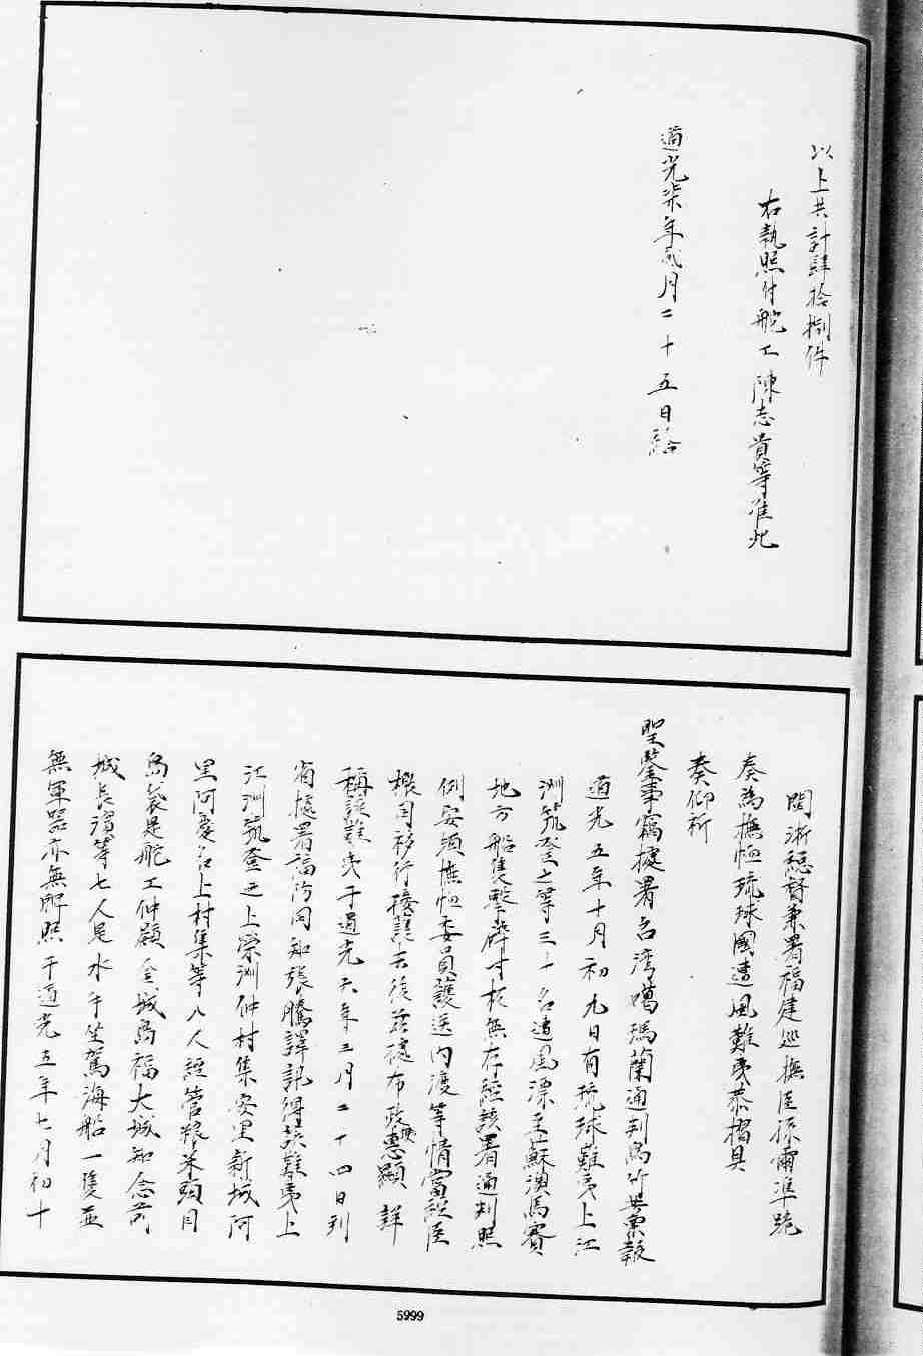 以上共計肆拾捌件
右執照付舵工陳志貴等准此
道光柒年貳月二十五日給
閩浙總督兼署福建巡撫臣孫爾準跪
奏爲撫恤琉球國遭風難夷恭摺具
奏仰祈
聖鑒事竊據署台灣噶瑪蘭通判烏竹芳稟報
道光五年十月初九日有琉球難夷上江
洲筑登之等三十名遭風漂至蘇澳馬賽
地方船隻擊碎寸板無存經該署通判照
例安頓撫恤委員護送內渡等情當經臣
檄司移行接護去後茲據布政使惠顯詳
稱該難夷于道光六年三月二十四日到
省據署福防同知張騰譯訊得該難夷上
江洲筑登之上榮洲仲村集安里新城阿
里阿慶名上村集等八人經管粮米頭目
島袋是舵工仲嶺金城島福大城知念
城長濱等七人是水手坐駕海船一隻並
無軍器亦無牌照于道光五年七月初十
5999